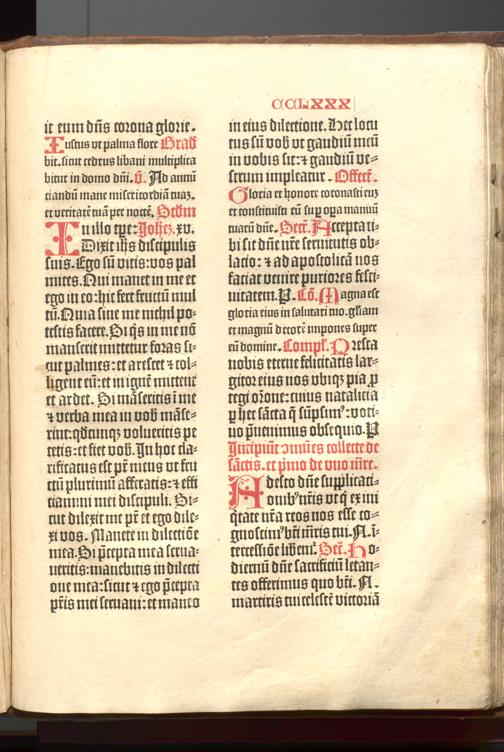 CCLXXX
it eum dñs corona glorie.
Iustus vt palma flore Grad̃
bit. sicut cedrus libani multiplica
bitur in domo dñi. ṽ. Ad annũ
tiandũ mane misericordiã tuaʒ.
et veritatẽ tuã per noctẽ. Scd̃m
In illo tꝑe: Joheʒ. xv.
Dixit ih̃s discipulis
suis. Ego sũ vitis: vos pal
mites. Qui manet in me et
ego in eo: hic fert fructũ mul
tũ. Quia sine me nichil po-
testis facere. Si q̃s in me nõ
manserit mittetur foras si-
cut palmes: et arescet ⁊ col-
ligent eũ: et in ignẽ mittent
et ardet. Si mãseritis ĩ me
⁊ verba mea in vob̃ mãse-
rint: qd̃cunqʒ volueritis pe
tetis: et fiet vob̃. In hoc cla-
rificatus est pr̃ meus vt fru
ctũ plurimũ afferatis: ⁊ effi
ciamini mei discipuli. Si-
cut dilexit me pr̃ et ego dile-
xi vos. Manete in dilectiõe
mea. Si p̃cepta mea serua-
ueritis: manebitis in dilecti
one mea: sicut ⁊ ego p̃cepta
pr̃is mei seruaui: et maneo
in eius dilectione. Hec locu
tus sũ vob̃ vt gaudiũ meũ
in vobis sit: ⁊ gaudiũ ve-
strum impleatur. Offert̃.
Gloria et honore coronasti eũ
et constituisti eũ suꝑ oꝑa manuũ
tuarũ dñe. Secr̃. Accepta ti-
bi sit dñe nr̃e seruitutis ob-
latio: ⁊ ad apostolicã nos
faciat venire puriores festi-
uitatem. P̲. Cõ. Magna est
gloria eius in salutari tuo. gl̃iam
et magnũ decorẽ impones super
eũ domine. Compl̃. Presta
nobis eterne felicitatis lar-
gitor eius nos vbiqʒ pia ꝓ
tegi or̃one: cuius natalicia
ꝑ hec sãcta q̃ sũpsim⁹: voti-
uo p̃uenimus obsequio. P̲
Incipiũt ꝯmũes collecte de
sãctis. et p̃mo de vno mr̃e.
Adesto dñe supplicati-
onib⁹ nr̃is vt q̃ ex ini
q̃tate nr̃a reos nos esse co-
gnoscim⁹ bt̃i mr̃is tui. N. ĩ-
tercessiõe liberẽt̃. Secr̃. Ho-
diernũ dñe sacrificiũ letan-
tes offerimus quo bt̃i. N.
martiris tui celestẽ victoriã